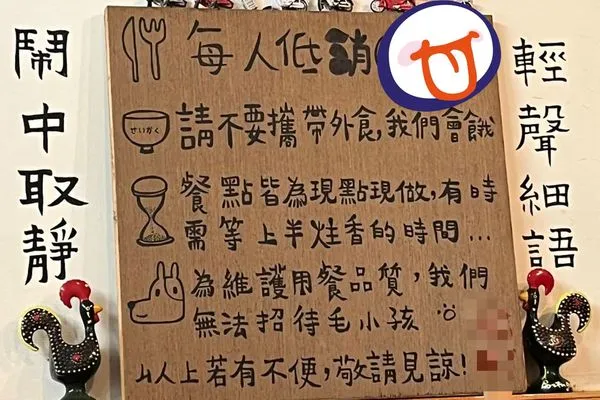 鬧中取靜
每人低銷
請不要攜帶外食,我們會餓
せいかく
餐點皆為現點現做,有時
需等上半炷香的時間...
為維護用餐品質,我們
無法招待毛小孩
以上若有不便,敬請見諒!
輕聲細語